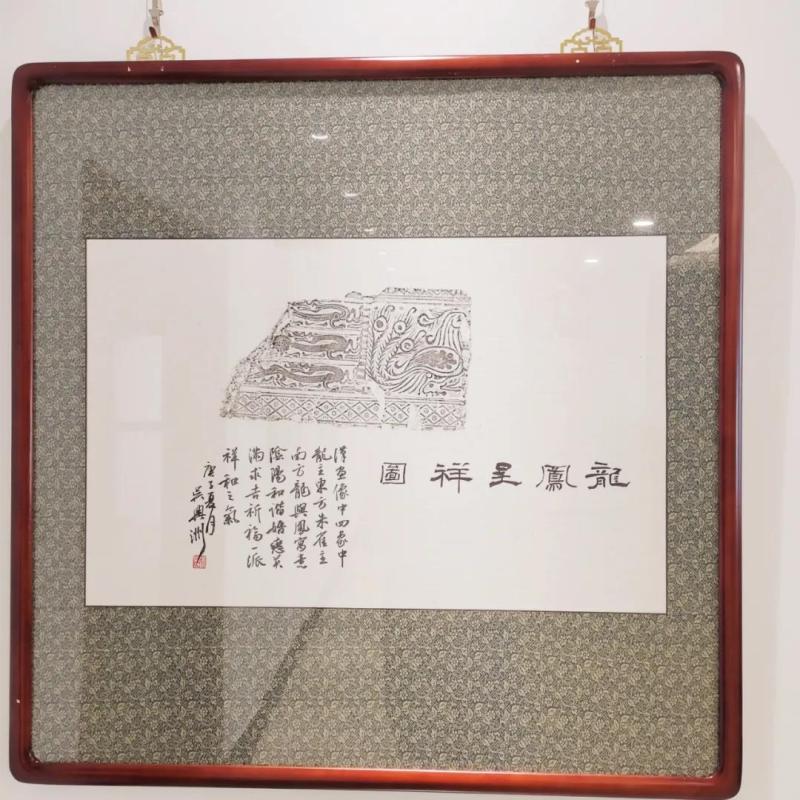 龍鳳呈祥圖
漢画像中四象中
龍主東方朱雀主
南方龍與鳳寓意
陰陽和偕婚戀美
滿求吉祈福一派
祥和之氣
庚子夏月
吳興洲